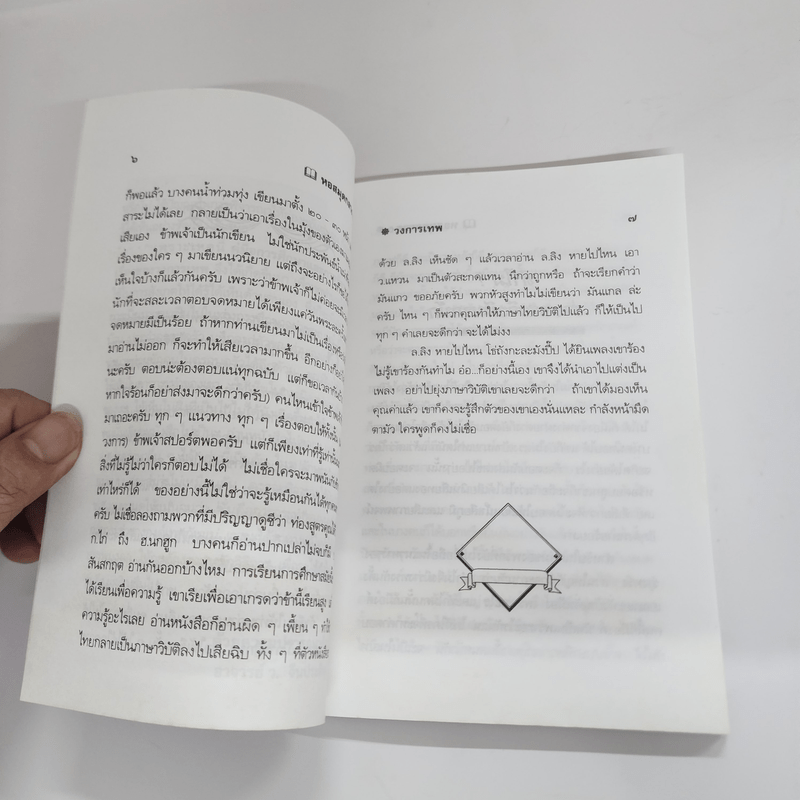 ๖
หอสมุด
ก็พอแล้ว บางคนน้ำท่วมทุ่ง เขียนมาตั้ง ๒๐ – ๓๐
สาระไม่ได้เลย กลายเป็นว่าเอาเรื่องในมุ้งของตัวเอง
เสียเอง ข้าพเจ้าเป็นนักเขียน ไม่ใช่นักประพันธ์
เรื่องของใคร ๆ มาเขียนนวนิยาย แต่ถึงจะอย่างไรก็
เห็นใจบ้างก็แล้วกันครับ เพราะว่าข้าพเจ้าก็ไม่ค่อยจะ
นักที่จะสละเวลาตอบจดหมายได้เพียงแค่วันพระละ
จดหมายมีเป็นร้อย ถ้าหากท่านเขียนมาไม่เป็นเรื่อง
มาอ่านไม่ออก ก็จะทำให้เสียเวลามากขึ้น อีกอย่าง
นะครับ ตอบนะต้องตอบแน่ทุกฉบับ แต่ก็ขอเวลากัน
หากใจร้อนก็อย่าส่งมาจะดีกว่าครับ) คนไหนเข้าใจข้าพเจ้า
มาเถอะครับ ทุก ๆ แนวทาง ทุก ๆ เรื่องตอบให้ทั้งนั้น
วงการ) ข้าพเจ้าสปอร์ตพอครับ แต่ก็เพียงเท่าที่รู้เท่านั้น
สิ่งที่ไม่รู้ไม่ว่าใครก็ตอบไม่ได้ ไม่เชื่อใครจะมาพนัน
เท่าไหร่ก็ได้ ของอย่างนี้ไม่ใช่ว่าจะรู้เหมือนกันได้ทุก
ครับ ไม่เชื่อลองถามพวกที่มีปริญญาดูซิว่า ท่องสูตรคูณ
ก.ไก่ ถึง ฮ.นกฮูก บางคนก็อ่านปากเปล่าไม่จบ
สันสกฤต อ่านกันออกบ้างไหม การเรียนการศึกษาสมัย
ได้เรียนเพื่อความรู้ เขาเรียเพื่อเอาเกรดว่าข้านี้เรียนสูง
ความรู้อะไรเลย อ่านหนังสือก็อ่านผิด ๆ เพี้ยน ๆ
ไทยกลายเป็นภาษาวิบัติลงไปเสียฉิบ ทั้ง ๆ ที่ตัวหนังสือ
วงการเทพ
๗
ด้วย ล.ลิง เห็นชัด ๆ แล้วเวลาอ่าน ล.ลิง หายไปไหน เอา
ว.แหวน มาเป็นตัวสะกดแทน นึกว่าถูกหรือ ถ้าจะเรียกคำว่า
มันแกว ขออภัยครับ พวกหัวสูงทำไมไม่เขียนว่า มันแกล ล่ะ
ครับ ไหน ๆ ก็พวกคุณทำให้ภาษาไทยวิบัติไปแล้ว ก็ให้เป็นไป
ทุก ๆ คำเลยจะดีกว่า จะได้ไม่งง
ล.ลิง หายไปไหน โช่ถังกะละมังปี๊ป ได้ยินเพลงเขาร้อง
ไม่รู้เขาร้องกันทำไม อ๋อ..ก็อย่างนี้เอง เขาจึงได้นำเอาไปแต่งเป็น
เพลง อย่าไปยุ่งภาษาวิบัติเขาเลยจะดีกว่า ถ้าเขาได้มองเห็น
คุณค่าแล้ว เขาก็คงจะรู้สึกตัวของเขาเองนั่นแหละ กำลังหน้ามืด
ตามัว ใครพูดก็คงไม่เชื่อ